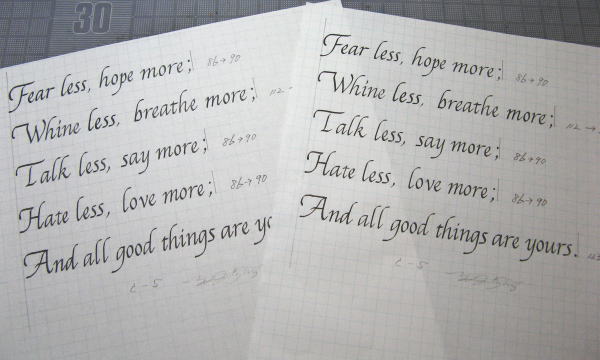 30
Fear less, hope more; 86→90
Whine less, breathe more; 112 -
Talk less, say more; 86→90
Hate less, love more; 86→90
And all good things are yo
c-5
Fear less, hope more; 86→90
Whine less, breathe more; 112 →
Talk less, say more; 86→90
Hate less, love more; 86→90
And all good things are yours.
c-5